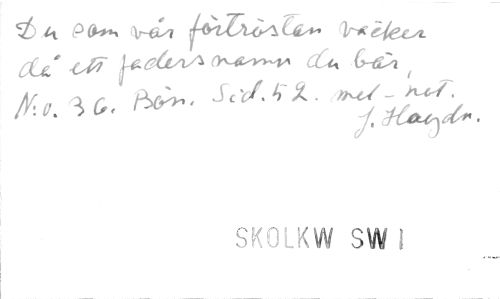 Du som vår förtröstan väcker
då ett fadersnamn du bär,
N:o. 36. Bön. Sid. 52. mel-not.
J. Haydn.
SKOLKW SW 1